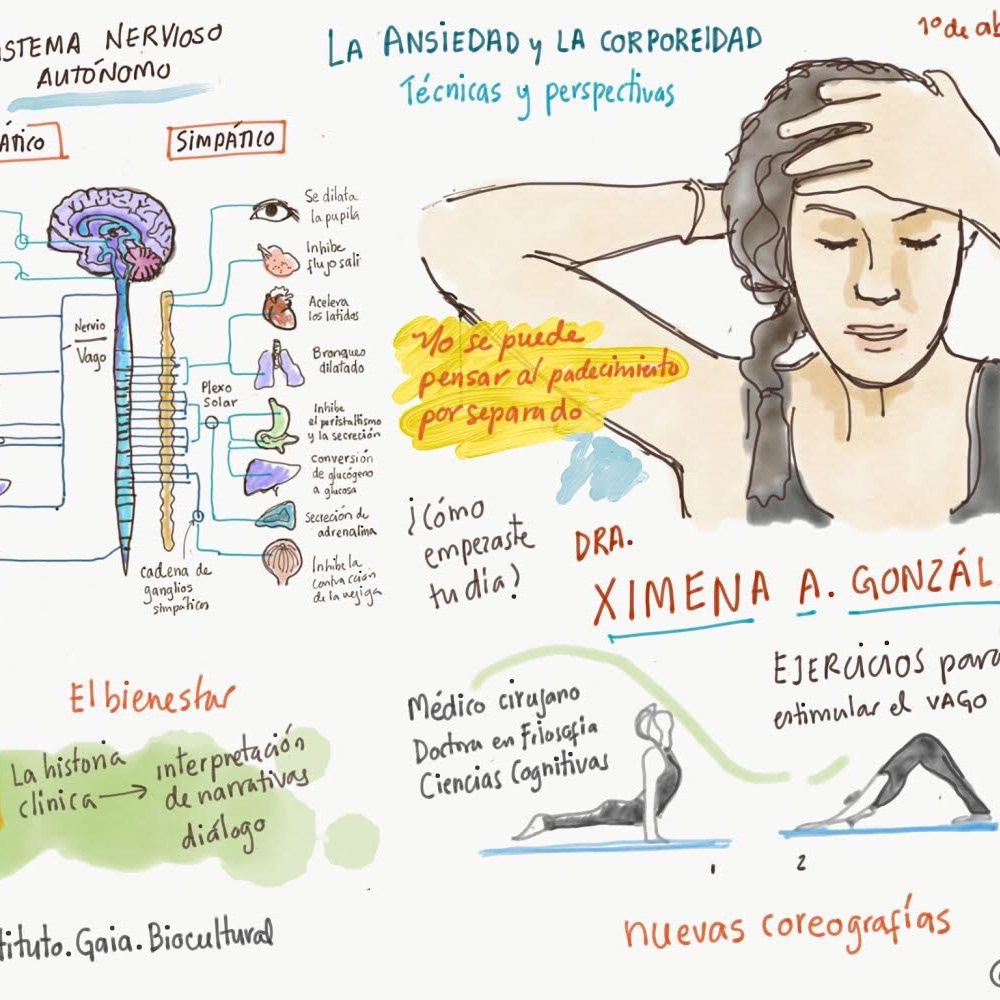 ISTEMA NERVIOSO
AUTÓNOMO
ÁTICO
SIMPÁTICO
Se dilata
la pupila
Inhibe
flujo sali
Acelera
los latidos
Bronquio
dilatado
Inhibe
el peristaltismo
y la secreción
Conversión
de glucógeno
a glucosa
Secreción de
adrenalina
Inhibe la
contracción
de la vejiga
Nervio
Vago
Plexo
Solar
cadena de
ganglios
simpáticos
LA ANSIEDAD y LA CORPOREIDAD
Técnicas y perspectivas
1º de ab
No se puede
pensar al padecimiento
por separado
¿Cómo
empezaste
tu día?
DRA.
XIMENA A. GONZÁL
El bienestar
La historia
clínica → interpretación
de narrativas
diálogo
Médico cirujano
Doctora en Filosofía
Ciencias Cognitivas
EJERCICIOS para
estimular el VAGO
1
2
nuevas coreografías
tituto.Gaia.Biocultural